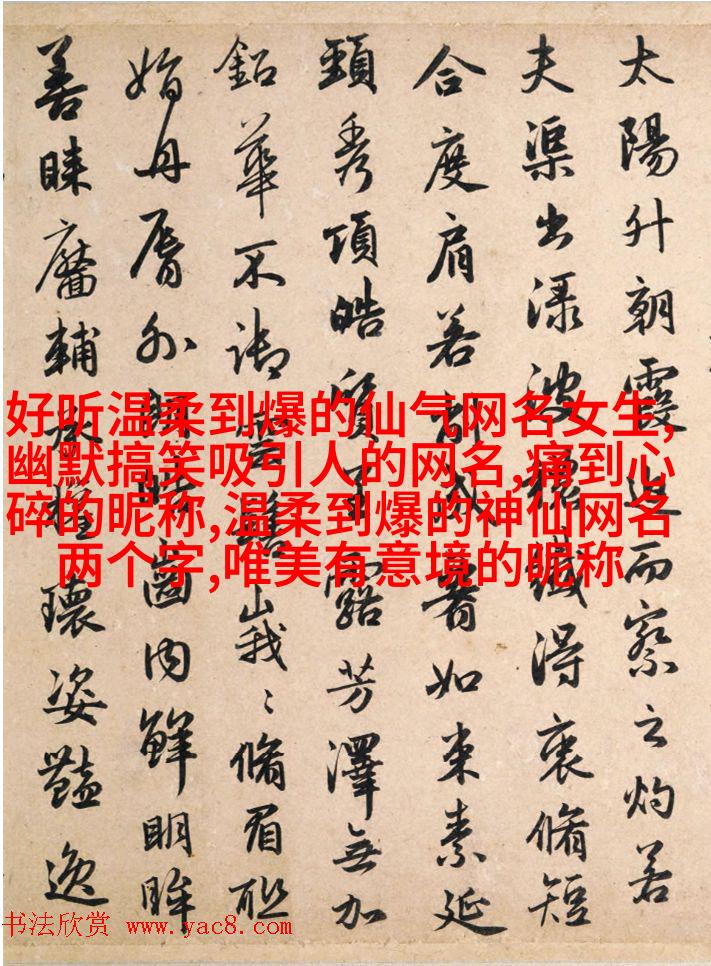 太陽升朝霞迫而察之灼若
夫渠出渌波穠纖得衷脩短
合度肩若削成如束素延
頸秀項皓質呈露芳澤無加
鉛華不御雲髻峩〻脩眉聯
娟丹脣外朗皓齒内鮮明眸
善睐靨輔承權瓌姿豔逸
好听温柔到爆的仙气网名女生,
幽默搞笑吸引人的网名,痛到心
碎的昵称,温柔到爆的神仙网名
两个字,唯美有意境的昵称
书法欣赏 www.yac8.com